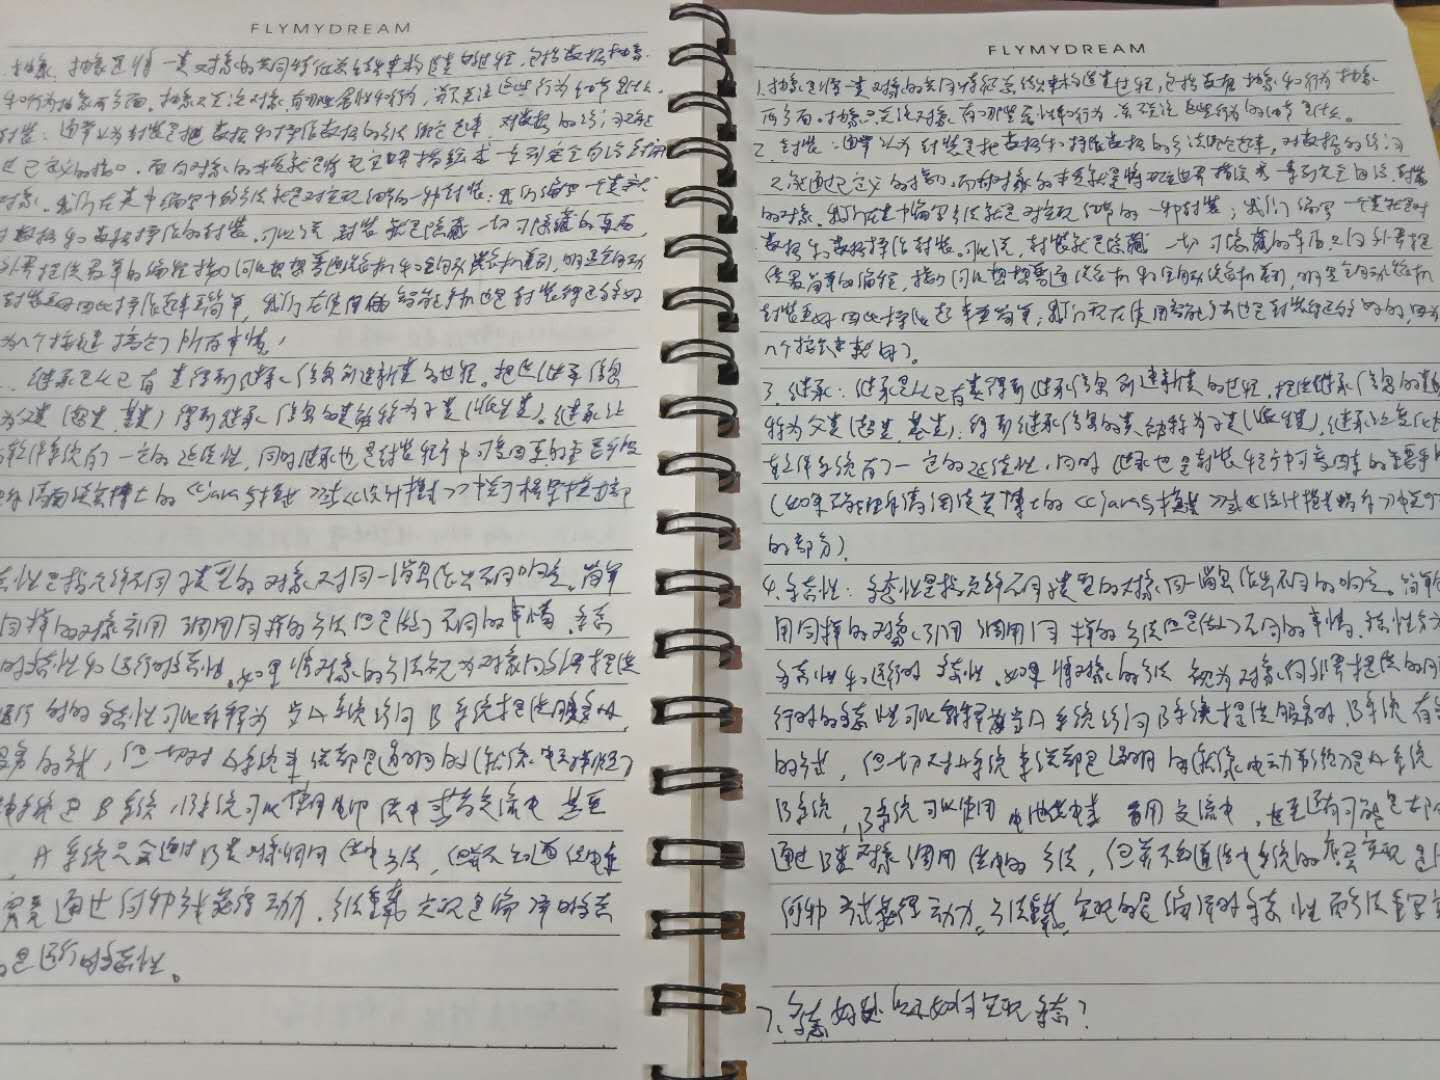 FLYMYDREAM
抽象、抽象是将一类对象的共同特征总结出来构造类的过程,包括数据抽象
和行为抽象两方面。抽象只关注对象有哪些属性和行为,并不关注这些行为细节是什么。
封装:通常认为封装是把数据和操作数据的方法绑定起来,对数据的访问只能
过已定义的接口。面向对象的本质就是将现实世界描绘成一系列完全自治封闭
对象。我们在类中编写的方法就是对实现细节的一种封装;我们编写一个类就
数据和数据操作的封装。可以说封装就是隐藏一切可隐藏的东西,
外界提供最简单的编程接口(可以想想普通洗衣机和全自动洗衣机差别,明显全自动
封装更好因此操作起来更简单,我们在使用智能手机也是封装得已够好
为几个按键搞定了所有事情)
继承是从已有类得到继承信息创建新类的过程。提供继承信息
为父类(超类、基类)得到继承信息的类被称为子类(派生类)。继承让
软件系统有了一定的延续性,同时继承也是封装程序中可变因素的重要手段
阎宏博士的《java与模式》或《设计模式》中关于桥梁模式部
态性是指允许不同子类型的对象对同一消息作出不同响应。简单
同样的对象引用调用同样的方法但是做了不同的事情。多态
时多态性和运行时多态性。如果将对象的方法视为对象向外界提供
运行时的多态性可以解释为当A系统访问B系统提供服务时,
服务的方式,但一切对A系统来说都是透明的(就像电动剃须刀
系统是B系统,B系统可以使用电池供电或者交流电甚至
A系统只会通过B类对象调用供电方法,但并不知道供电系
究竟通过何种方式获得动力。方法重载实现是编译时多态
是运行时多态性。
FLYMYDREAM
1.抽象:是将一类对象的共同特征总结出来构造类过程,包括数据抽象和行为抽象
两方面。抽象只关注对象有哪些属性和行为,并不关注这些行为的细节是什么。
2.封装:通常认为封装是把数据和操作数据的方法绑定起来,对数据的访问
只能通过已定义的接口。面向对象的本质就是将现实世界描绘成一系列完全自治、封闭
的对象。我们在类中编写方法就是对实现细节的一种封装;我们编写一个类就是对
数据和数据操作封装。可以说,封装就是隐藏一切可隐藏的东西只向外界提
供最简单的编程接口(可以想想普通洗衣机和全自动洗衣机差别,明显全自动洗衣机
封装更好因此操作起来更简单;我们现在使用智能手机也是封装得已够好的,因为
几个按键就
3.继承:继承是从已有类得到继承信息创建新类的过程。提供继承信息的类
称为父类(超类、基类);得到继承信息的类被称为子类(派生类)。继承让变化中
软件系统有了一定的延续性,同时继承也是封装程序中可变因素的重要手
(如果不能理解请阅读阎宏博士的《java与模式》或《设计模式精解》中关于
的部分)。
4.多态性:多态性是指允许不同子类型的对象同一消息作出不同的响应。简单
用同样的对象引用调用同样的方法但是做了不同的事情。多态性分为
多态性和运行时多态性。如果将对象的方法视为对象向外界提供的
行时的多态性可以解释为当A系统访问B系统提供服务时,B系统有
的方式,但一切对A系统来说都是透明的(就像电动剃须刀是A系统
B系统,B系统可以使用电池供电或者用交流电,甚至还有可能是太阳
通过B类对象调用供电的方法,但并不知道供电系统的底层实现是什
何种方式获得动力。方法重载实现的是编译时多态性而方法重写
7.多态好处以及如何实现多态?